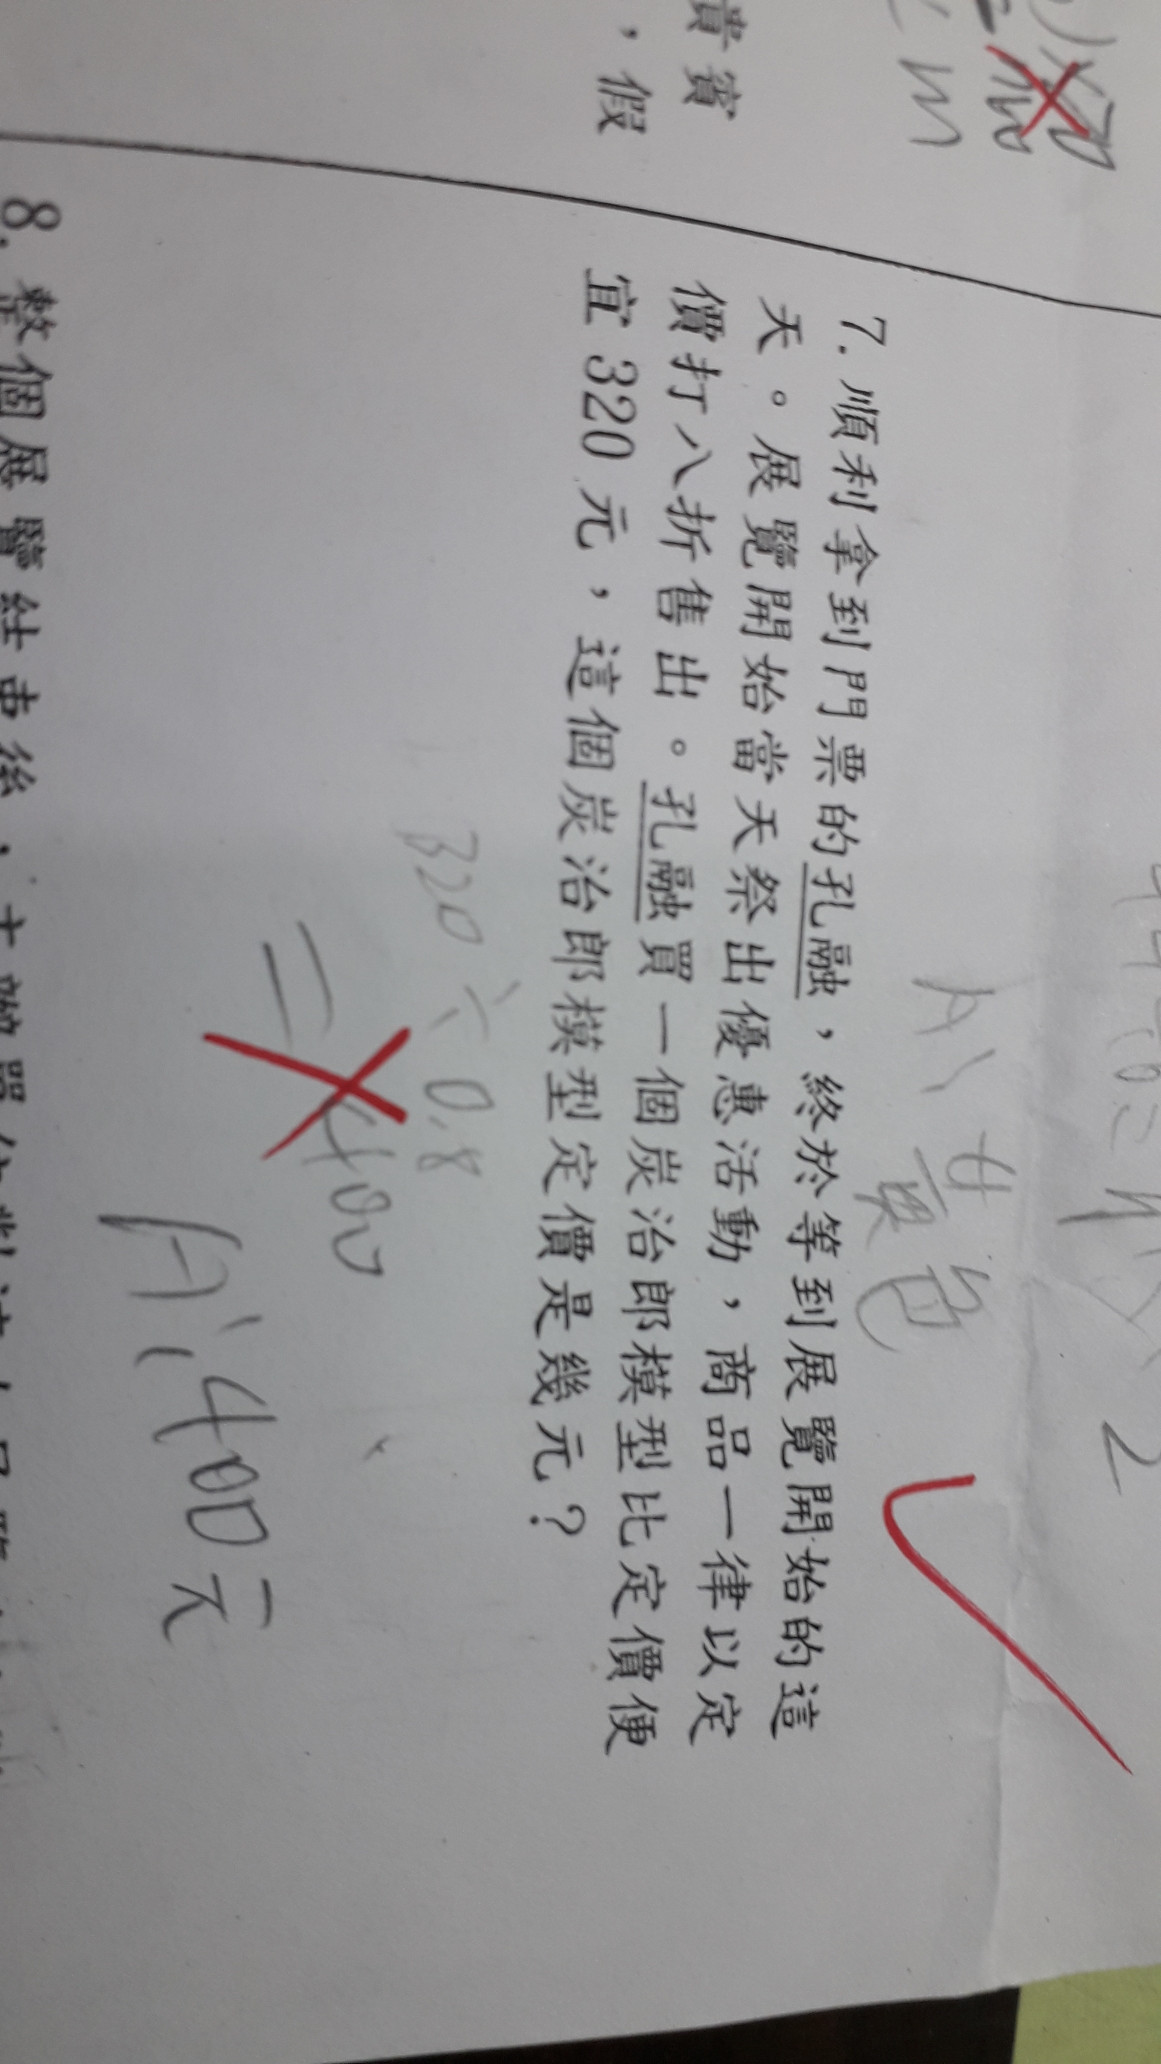 貴賓
，假
7. 順利拿到門票的孔融，終於等到展覽開始的這
天。展覽開始當天祭出優惠活動，商品一律以定
價打八折售出。孔融買一個炭治郎模型比定價便
宜 320 元，這個炭治郎模型定價是幾元？
320 ÷ 0.8
= 400
A：400元
A：黃色
8. 整個展覽結束後，主辦單位